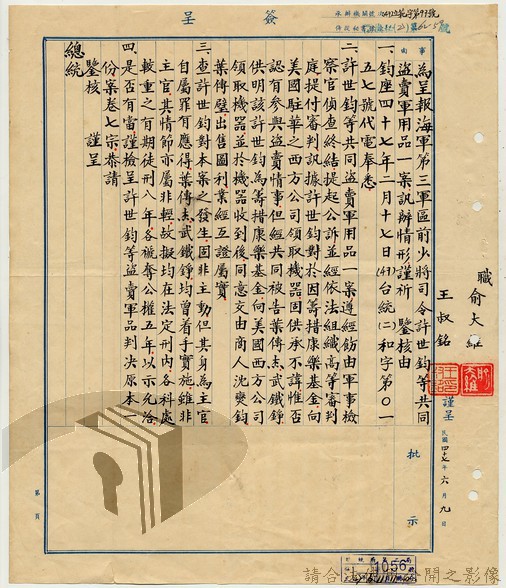 簽呈
事由
為呈報海軍第三軍區前少將司令許世鈞等共同
盜賣軍用品一案訊辦情形謹祈 鑒核由
一、鈞座四十七年二月十七日(47)台統(二)和字第〇一
五七號代電奉悉
二、許世鈞等共同盜賣軍用品一案遵經飭由軍事檢
察官偵查終結提起公訴並經依法組織高等審判
庭提付審判訊據許世鈞對於因籌措康樂基金向
美國駐華之西方公司領取機器固供承不諱惟否
認有參與盜賣情事但經共同被告葉傳志武鐵錚
供明該許世鈞為籌措康樂基金向美國西方公司
領取機器並於機器收到後同意交由商人沈奭鈞
葉傳璧出售圖利業經互證屬實
三、查許世鈞對本案之發生固非主動但其身為主官
自屬罪有應得葉傳志武鐵錚均曾着手實施雖非
主官其情節亦屬非輕故擬均在法定刑內各科處
較重之有期徒刑八年各褫奪公權五年以示允洽
四、是否有當謹檢呈許世鈞等盜賣軍品判決原本一
份案卷七宗恭請
鑒核 謹呈
總統
職 俞大維
王叔銘
謹呈
民國四十七年六月九日
批示
第 頁
1056
請合法使用公開之影像